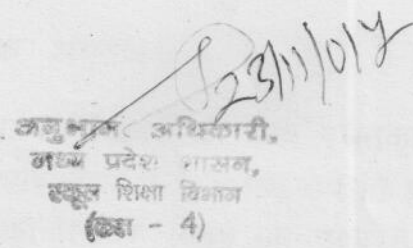 23/11/07
अनुभाग अधिकारी,
मध्य प्रदेश शासन,
स्कूल शिक्षा विभाग
(कक्ष - 4)